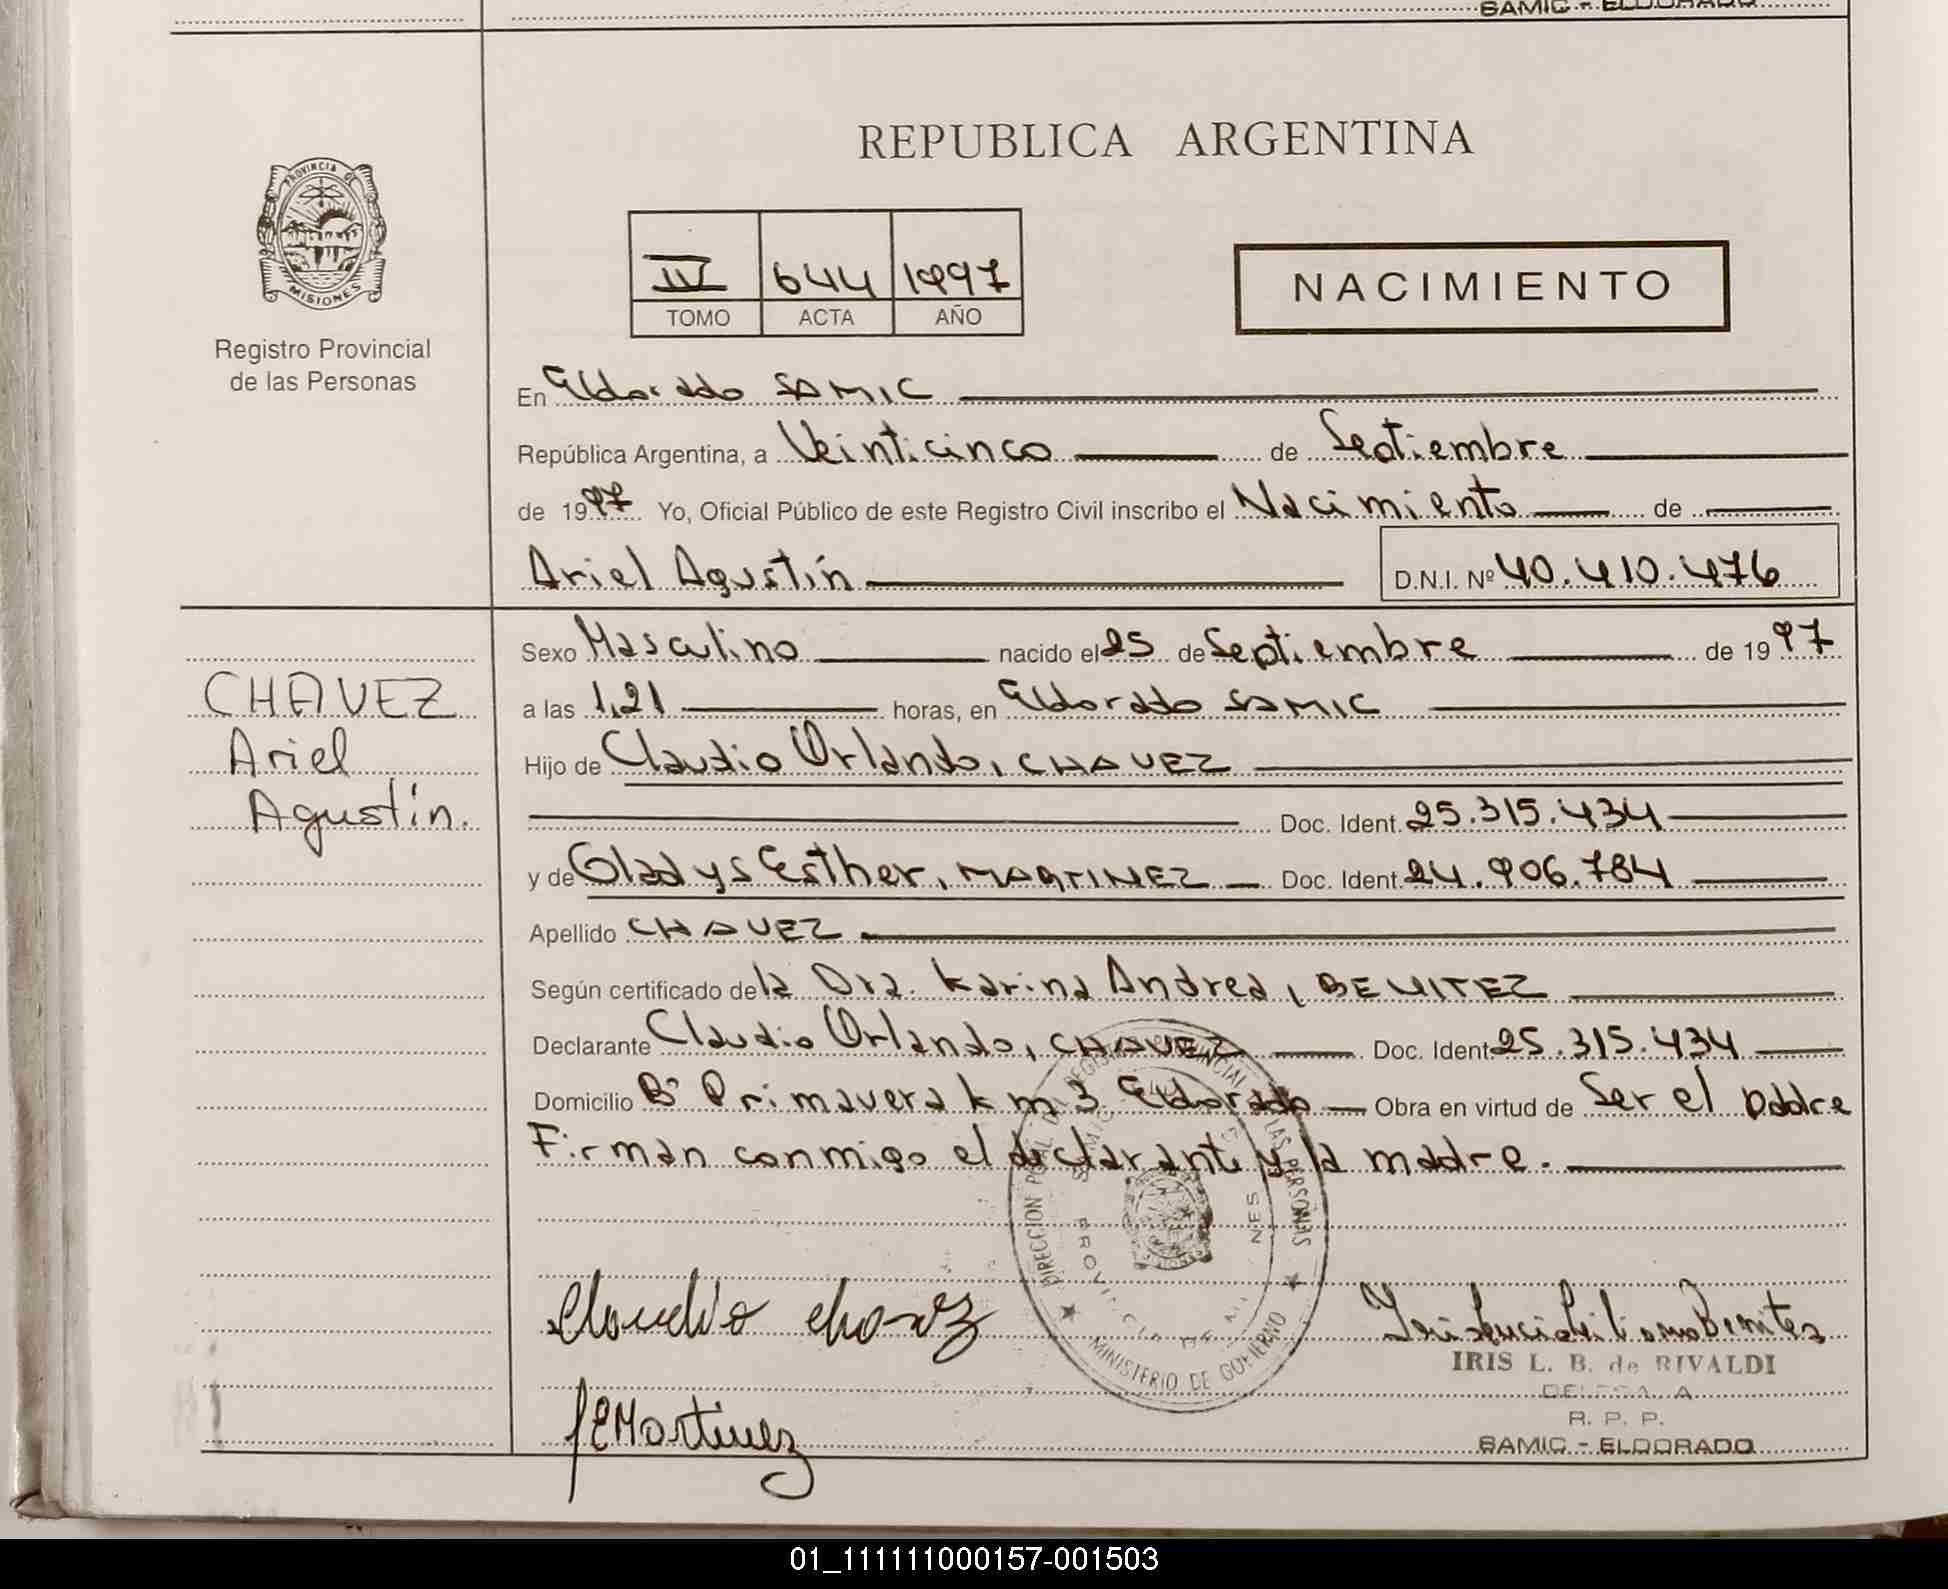 SAMIC - ELDORADO
REPUBLICA ARGENTINA
PROVINCIA DE
MISIONES
Registro Provincial
de las Personas
IV 644 1997
TOMO ACTA AÑO
NACIMIENTO
En Eldorado SAMIC
República Argentina, a Veinticinco de Septiembre
de 1997 Yo, Oficial Público de este Registro Civil inscribo el Nacimiento de
Ariel Agustín D.N.I. Nº 40.410.476
Sexo Masculino nacido el 25 de Septiembre de 1997
CHAVEZ
Ariel
Agustín.
a las 1,21 horas, en Eldorado SAMIC
Hijo de Claudio Orlando, CHAVEZ
Doc. Ident. 25.315.434
y de Gladys Esther, MARTINEZ Doc. Ident. 24.906.784
Apellido CHAVEZ
Según certificado de la Dra. Karina Andrea, BENITEZ
Declarante Claudio Orlando, CHAVEZ Doc. Ident 25.315.434
Domicilio Bº Primavera km 3 Eldorado Obra en virtud de Ser el padre
Firman conmigo el declarante y la madre.
MINISTERIO DE GOBIERNO
Claudio Chavez
IRIS L. B. de RIVALDI
R. P. P.
SAMIC - ELDORADO
01_111111000157-001503